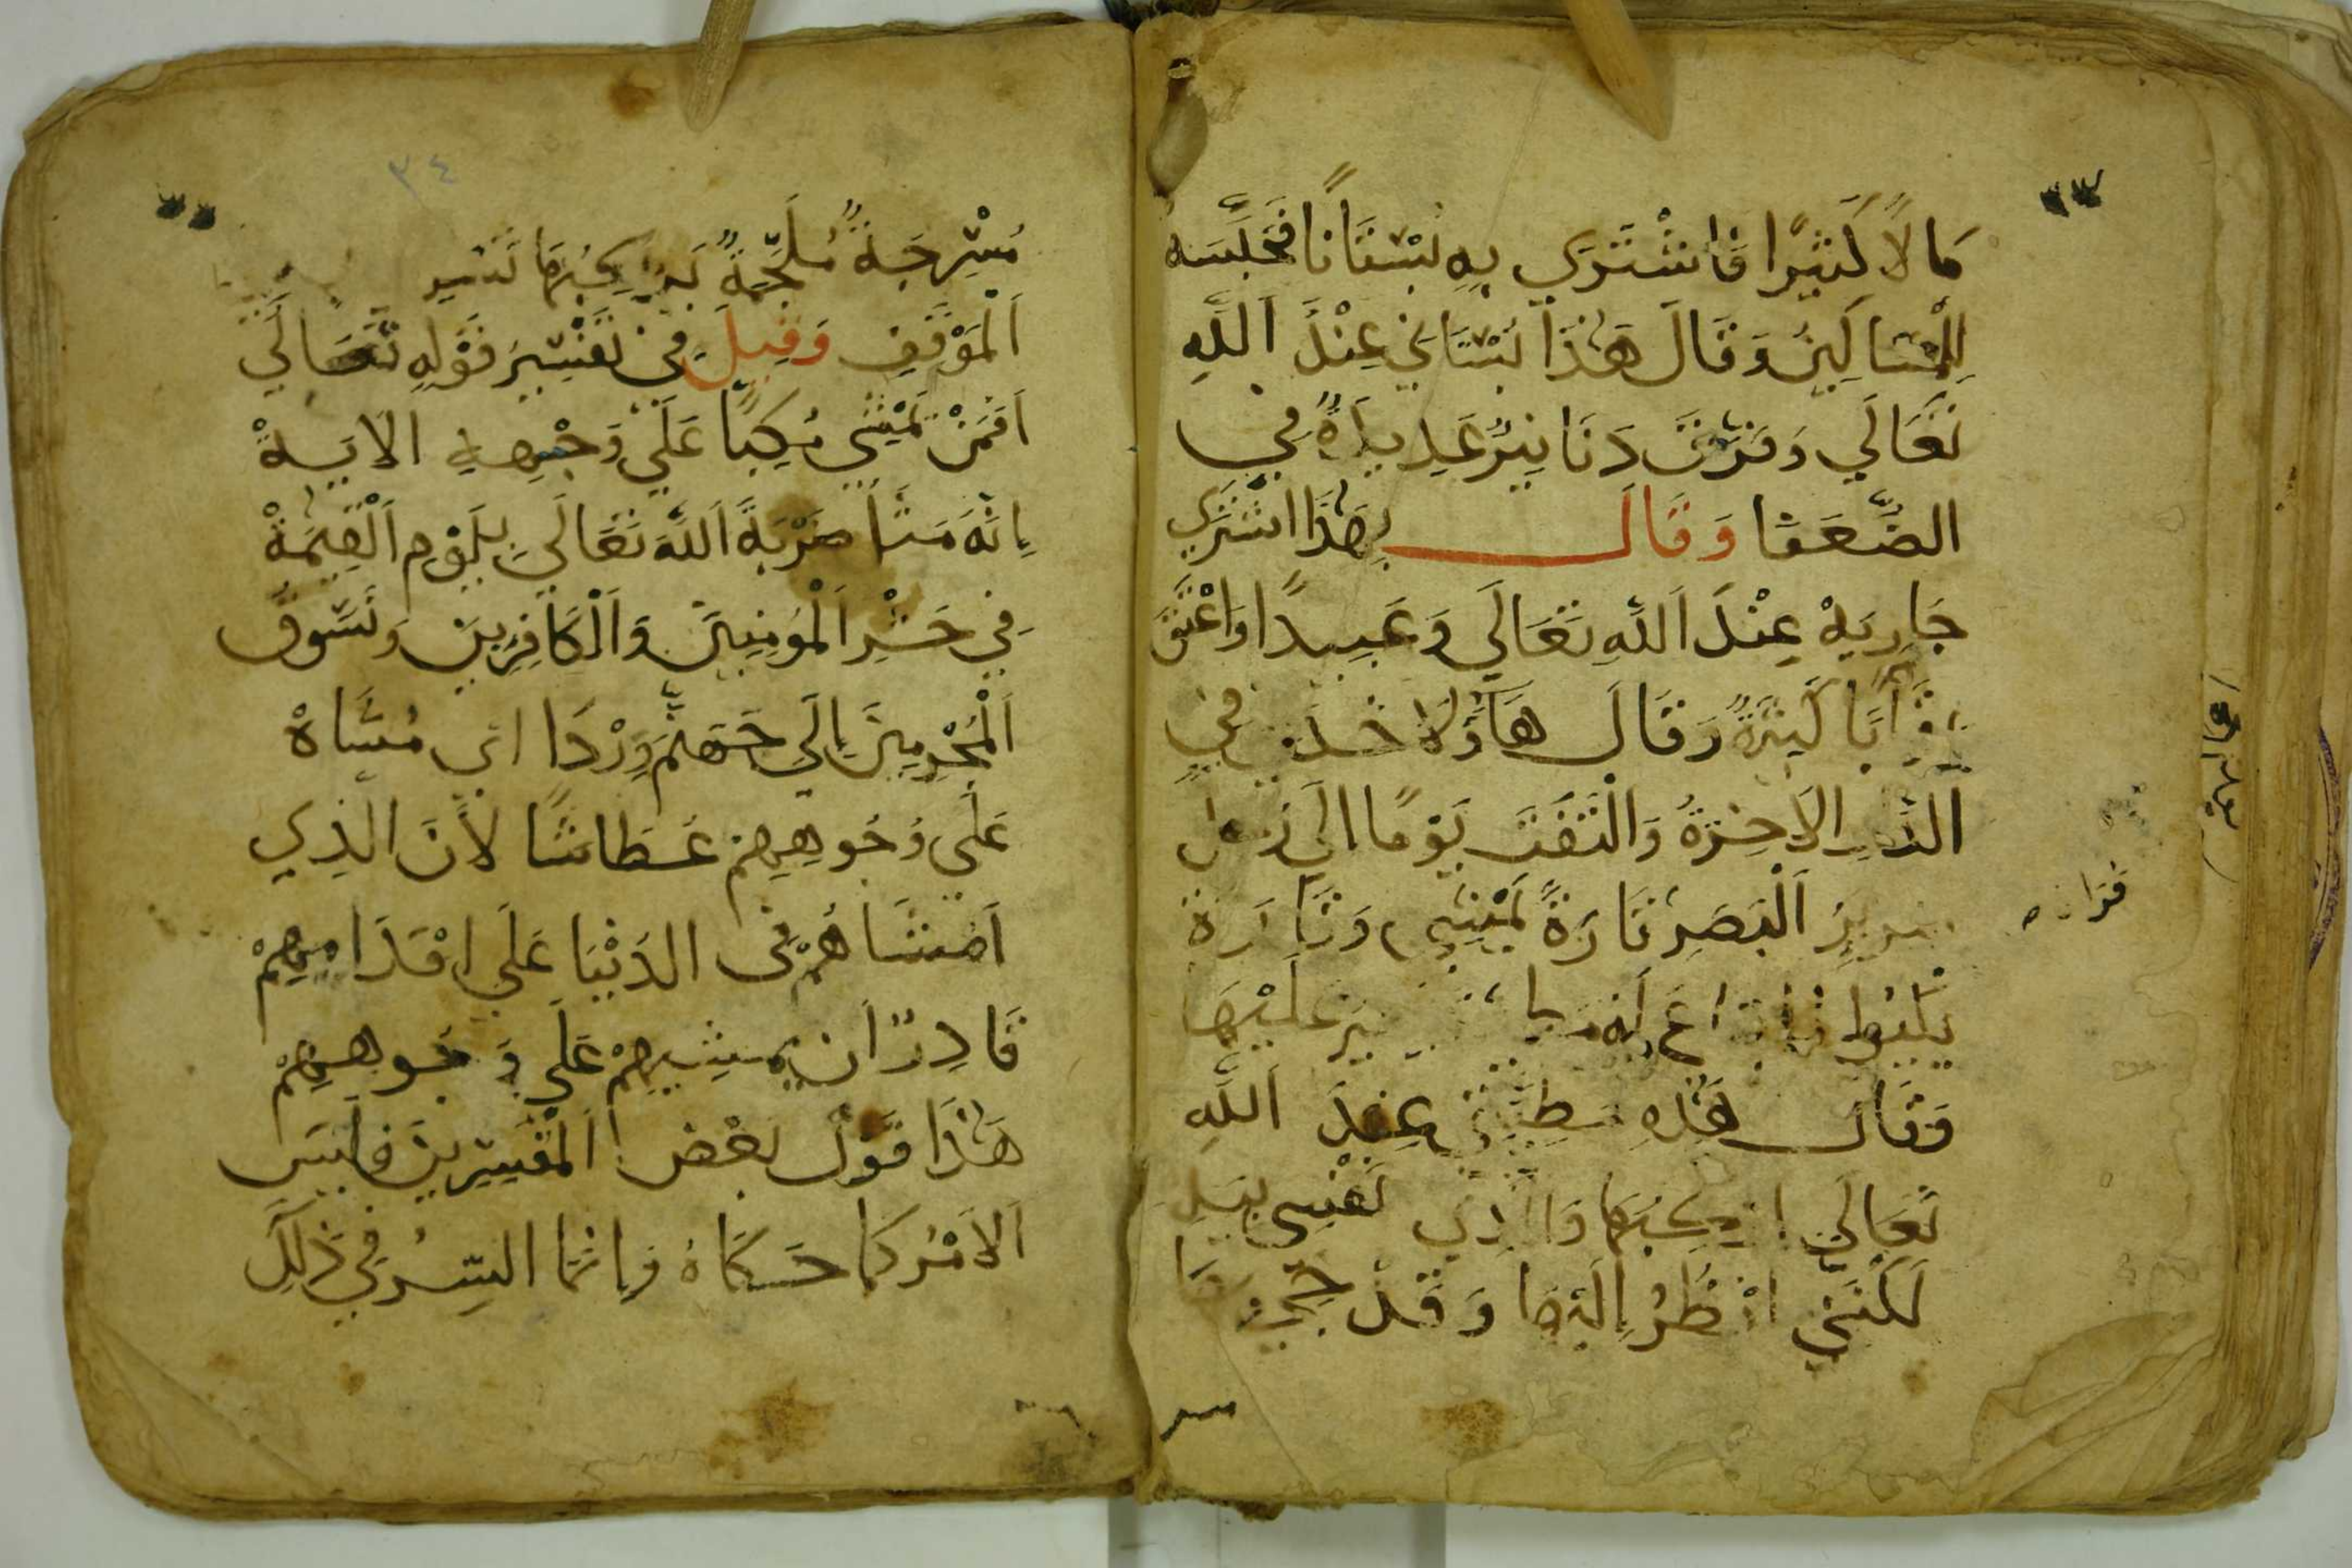 مَالاً كَثِيرًا فَاشْتَرَى بِهِ بُسْتَانًا فَحَبَّسَهُ
لِلْمَسَاكِينِ وَقَالَ هَذَا بُسْتَانِي عِنْدَ اَللَّهِ
تَعَالَي وَفَرَّقَ دَنَانِيرَ عَدِيدَةً فِي
الضُّعَفَا وَقَالَ بِهَذَا اشْتَرِي
جَارِيَةْ عِنْدَ اَللَّهِ تَعَالَي وَعَبِيدًا وَاعْتَقَ
رِقَابًا كَثِيرَةً وَقَالَ هَاؤُلَا خَدَمِي فِي
اَلدَّارِ الاَخِرَةْ وَالْتَفَتَ يَوْمًا الَي رَجُلٍ
ضَرِيرِ اَلْبَصَرِ تَارَةً يَمْشِي وَتَارَةً
عَلَيْهَا
وَقَالَ هَذِهِ مَطِيَّتِي عِنْدَ اَللَّهِ
تَعَالَي ارْكَبُهَا وَالَّذِي نَفْسِي بِيَدِهِ
لَكَنَنِي انْظُرُ اِلَيْهَا وَقَدْ
٣٤
مُسْرَجَةً مُلَجَّمَةً يَرْكَبُهَا
اَلْمَوْقِفِ وَقِيلَ فِي تَفْسِيرِ قَوْلِهِ تَعَالَي
اَفَمَنْ يَمْشِي مُكِبًّا عَلَي وَجْهِهِ الايَةْ
اِنَّهُ مَثَلٌ ضَرَبَهُ اَللَّهُ تَعَالَي لِيَوْمِ اَلْقِيَمَةْ
فِي حَشْرِ اَلْمُؤْمِنِينَ وَاَلْكَافِرِينَ وَنَسُوقُ
اَلْمُجْرِمِينَ اِلَي جَهَنَّمَ وِرْدَا اي مُشَاةْ
عَلَي وُجُوهِهِمْ عِطَاشًا لاَنَّ الَّذِي
اَمْشَاهُمْ فِى الدُّنْيَا عَلَي اقْدَامِهِمْ
قَادِرٌ اَنْ يُمْشِيهِمْ عَلَي وُجُوهِهِمْ
هَذَا قَوْلُ بَعْضِ اَلْمُفَسِّرِينَ فَلَيْسَ
اَلاَمْرُ كَمَا حَكَاهُ فَاِنَّمَا السِّرُّ فِي ذَلِكَ